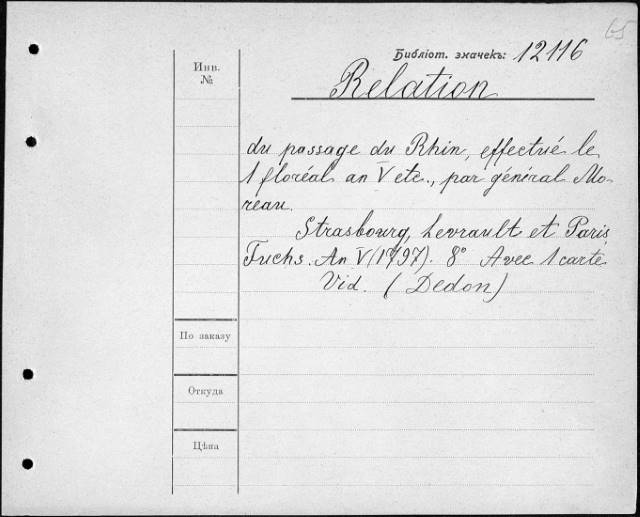 65
Библіот. значекъ: 12116
Инв.
№
Relation
du passage du Rhin, effectué le
1 floréal an V etc., par général Mo-
reau.
Strasbourg, Levrault et Paris
Fuchs. An V (1797). 8° Avec 1 carte
Vid. (Dedon)
По заказу
Откуда
Цѣна